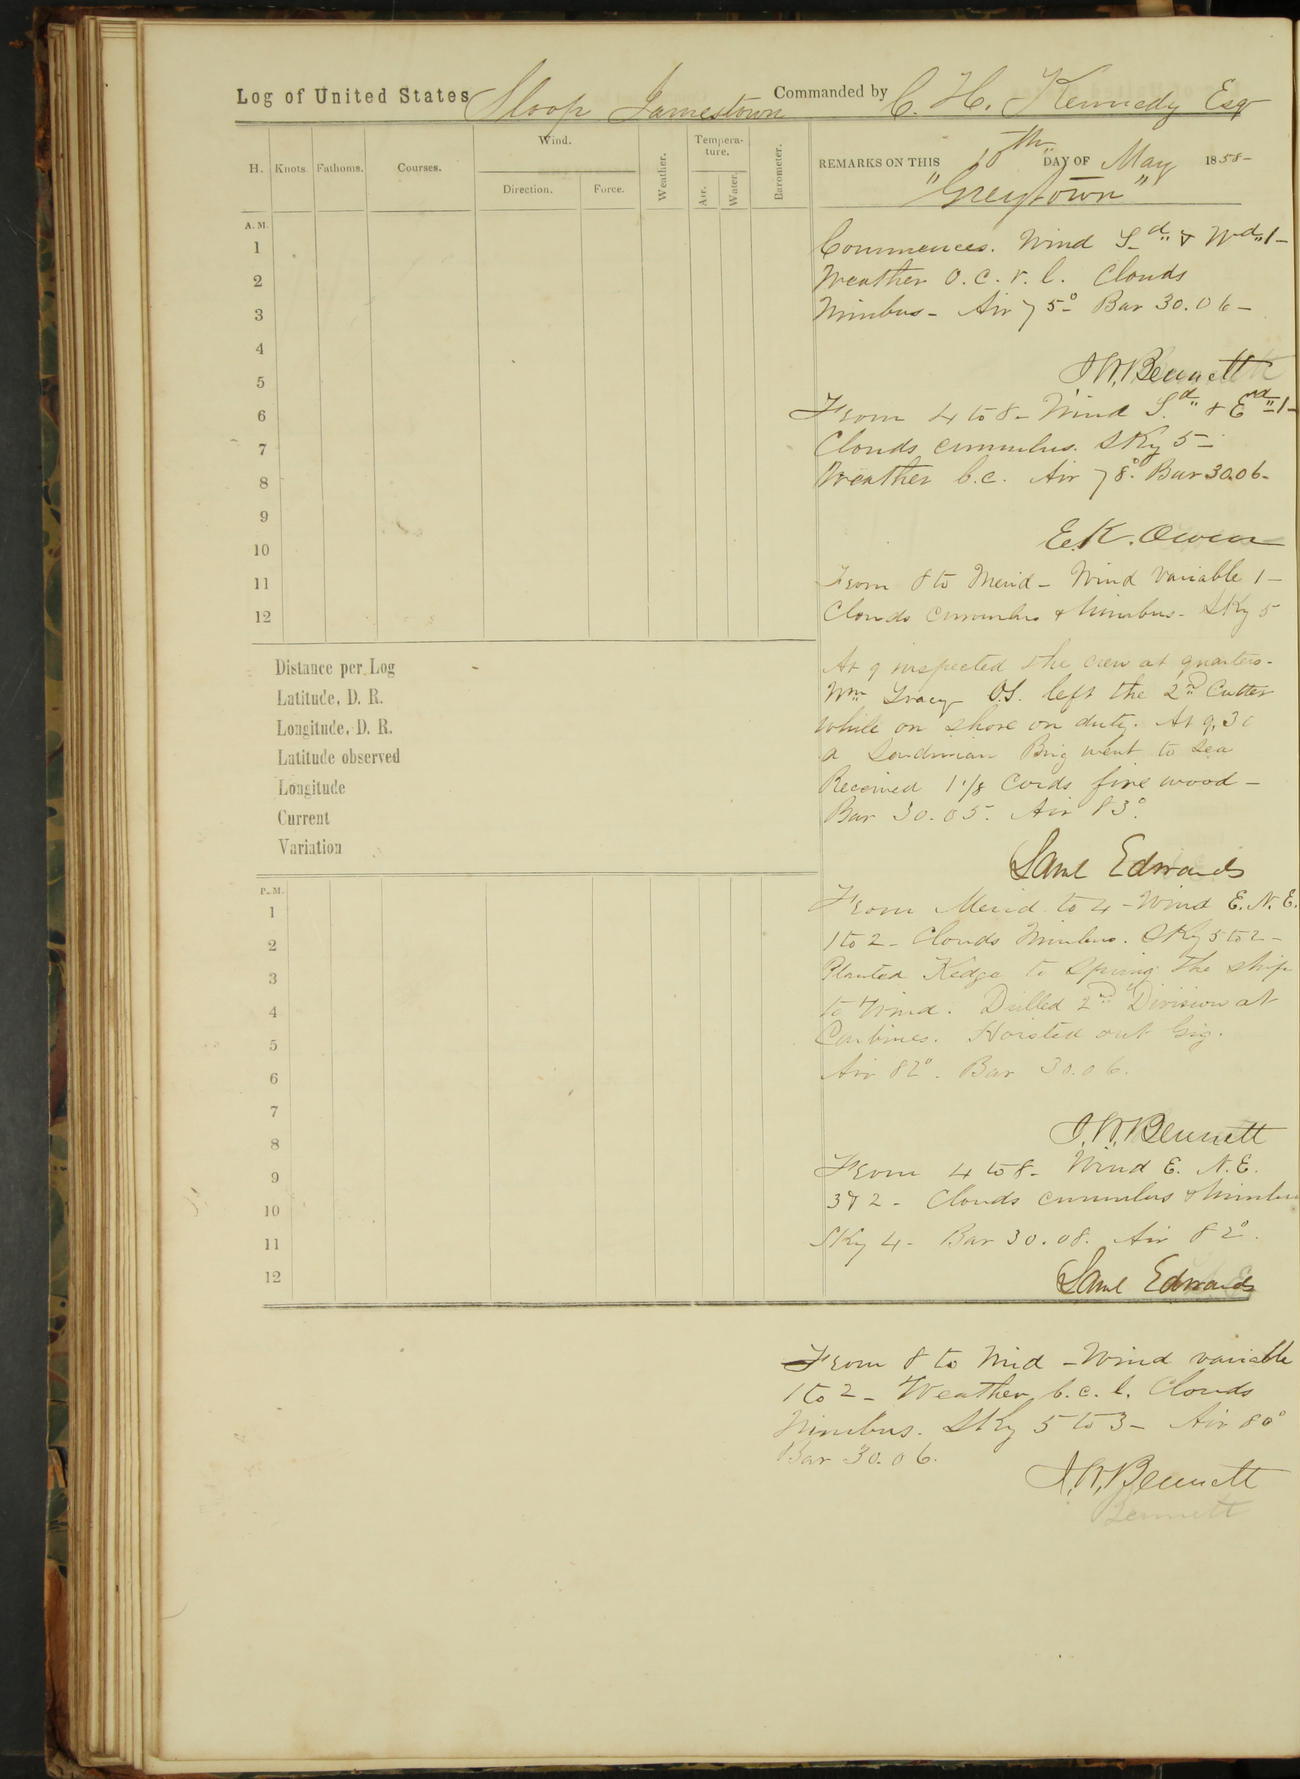 Log of United States Sloop Jamestown Commanded by C. H. Kennedy Esq
H. Knots Fathoms. Courses. Wind. Direction. Force. Weather. Temperature. Air. Water. Barometer.
REMARKS ON THIS DAY OF May 1858-
"Greytown"
A. M.
1
2
3
4
5
6
7
8
9
10
11
12
Commences. Wind Sd. & Wd. 1-
Weather o. c. r. l. Clouds
Nimbus- Air 75° Bar 30.06-
J. W. Bennett
From 4 to 8- Wind Sd. & Ed. 1-
Clouds cumulus. Sky 5-
Weather b.c. Air 78° Bar 30.06-
E. K. Owen
From 8 to Merid- Wind variable 1-
Clouds cumulus & Nimbus- Sky 5
At 9 inspected the crew at quarters-
Wm Tracy O.S. left the 2nd Cutter
while on shore on duty. At 9.30
a Sardinian Brig went to sea
Received 1 1/8 Cords fire wood-
Bar 30.05. Air 83°.
Saml Edwards
Distance per Log
Latitude, D. R.
Longitude, D. R.
Latitude observed
Longitude
Current
Variation
P. M.
1
2
3
4
5
6
7
8
9
10
11
12
From Merid to 4- Wind E. N. E.
1 to 2- Clouds Nimbus. Sky 5 to 2-
Planted Kedge to spring the ship
to Wind. Drilled 2nd Division at
Carbines. Hoisted out Gig.
Air 82°. Bar 30.06.
J. W. Bennett
From 4 to 8- Wind E. N. E.
3 & 2- Clouds cumulus & Nimbus
Sky 4- Bar 30.08. Air 82°.
Saml Edwards
From 8 to Mid- Wind variable
1 to 2- Weather b. c. l. Clouds
Nimbus. Sky 5 to 3- Air 80°
Bar 30.06.
J. W. Bennett
Bennett